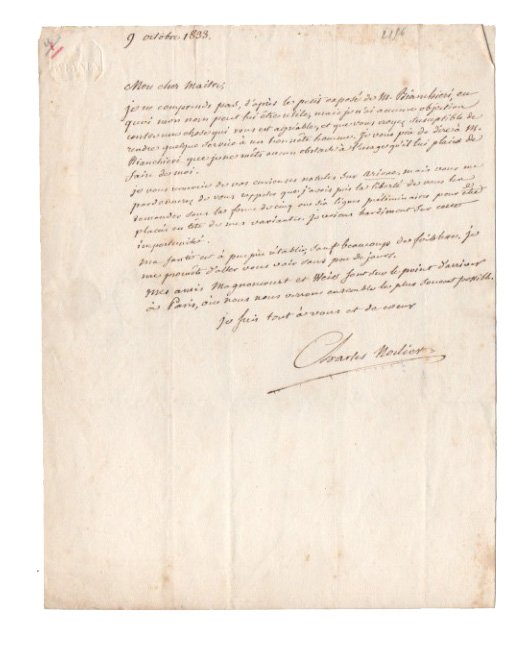 9 octobre 1833.
2116
Mon cher Maître,
je ne comprends pas, d'après le petit exposé de M. Bianchieri, en
quoi mon nom peut lui être utile, mais je n'ai aucune objection
contre une chose qui vous est agréable, et que vous croyez susceptible de
rendre quelque service à un honnête homme. Je vous prie de dire à M.
Bianchieri que je ne mets aucun obstacle à l'usage qu'il lui plaira de
faire de moi.
je vous remercie de vos curieuses notules sur mais vous me
pardonnerez de vous rappeler que j'avais pris la liberté de vous les
demander sous la forme de cinq ou six lignes préliminaires pour être
placées en tête de mes variantes. Je reviens hardiment sur cette
importunité.
Ma santé est à peu près rétablie, sauf beaucoup de foiblesse. je
me promets d'aller vous voir sous peu de jours.
Mes amis Magnoncourt et Weiss sont sur le point d'arriver
à Paris, où nous nous verrons ensemble le plus souvent possible.
Je suis tout à vous et de coeur
Charles Nodier